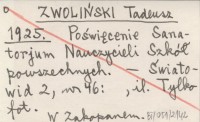 ZWOLIŃSKI Tadeusz
1925. Poświęcenie Sana-
torjum Nauczycieli Szkół
powszechnych. Świato-
wid 2, nr 96: , il. Tylko
fot.
W Zakopanem.